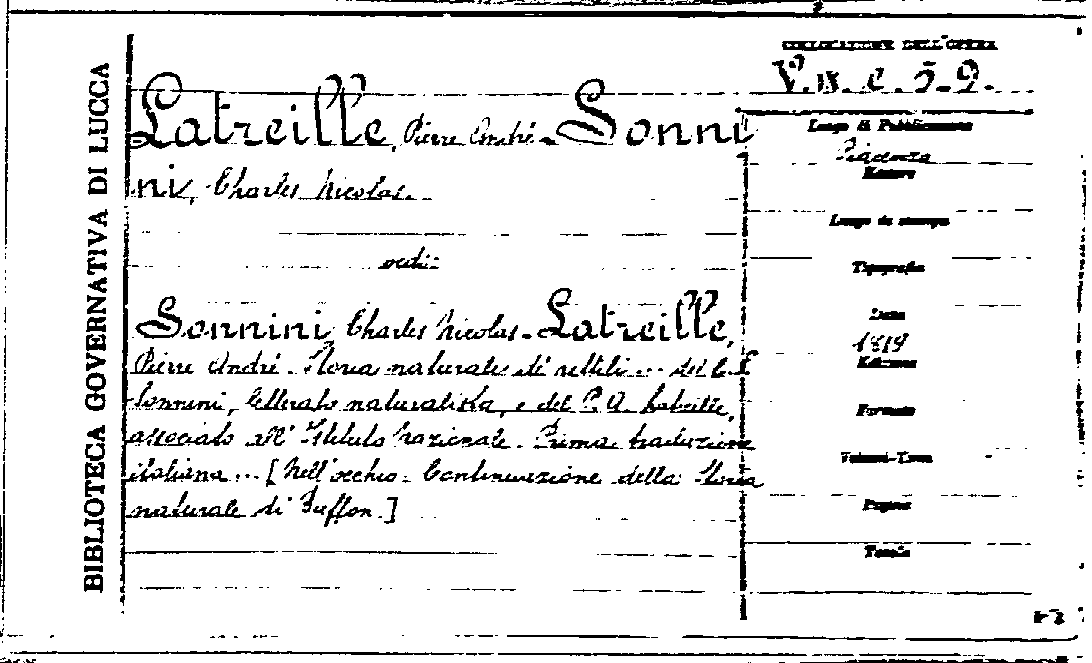 BIBLIOTECA GOVERNATIVA DI LUCCA
COLLOCAZIONE DELL'OPERA
Latreille, Pierre André - Sonni
ni, Charles Nicolas.
vedi:
Sonnini, Charles Nicolas - Latreille,
Pierre André - Storia naturale di rettili ... del C. S.
Sonnini, letterato naturalista, e del P. A. Latreille,
associato all' Istituto Nazionale. Prima traduzione
italiana ... [Nell'occhio - Continuazione della Storia
naturale di Buffon.]
Luogo di Pubblicazione
Piacenza
Editore
Luogo di stampa
Tipografia
Data
Edizione
Formato
Volumi-Tomi
Pagine
Tavole